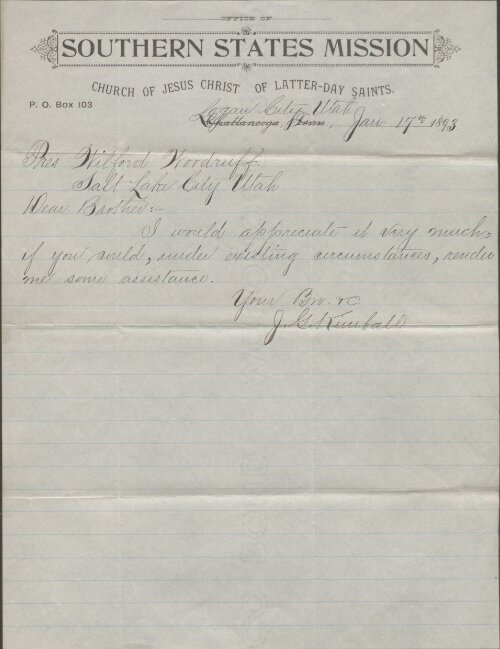 OFFICE OF
SOUTHERN STATES MISSION
CHURCH OF JESUS CHRIST OF LATTER-DAY SAINTS.
P. O. Box 103
Logan City Utah
Chattanooga, Tenn., Jan 17th 1893
Pres Wilford Woodruff
Salt Lake City Utah
Dear Brother:-
I would appreciate it very much
if you could, under existing circumstances, render
me some assistance.
Your Bro. &c.
J. G. Kimball